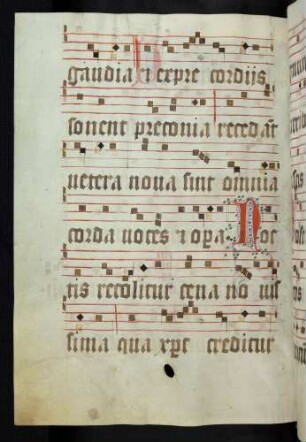 gaudia et expre cordijs
sonent preconia recedant
uetera noua sint omnia
corda uoces et opera Noc
tis recolitur cena nouis
sima qua xpc creditur